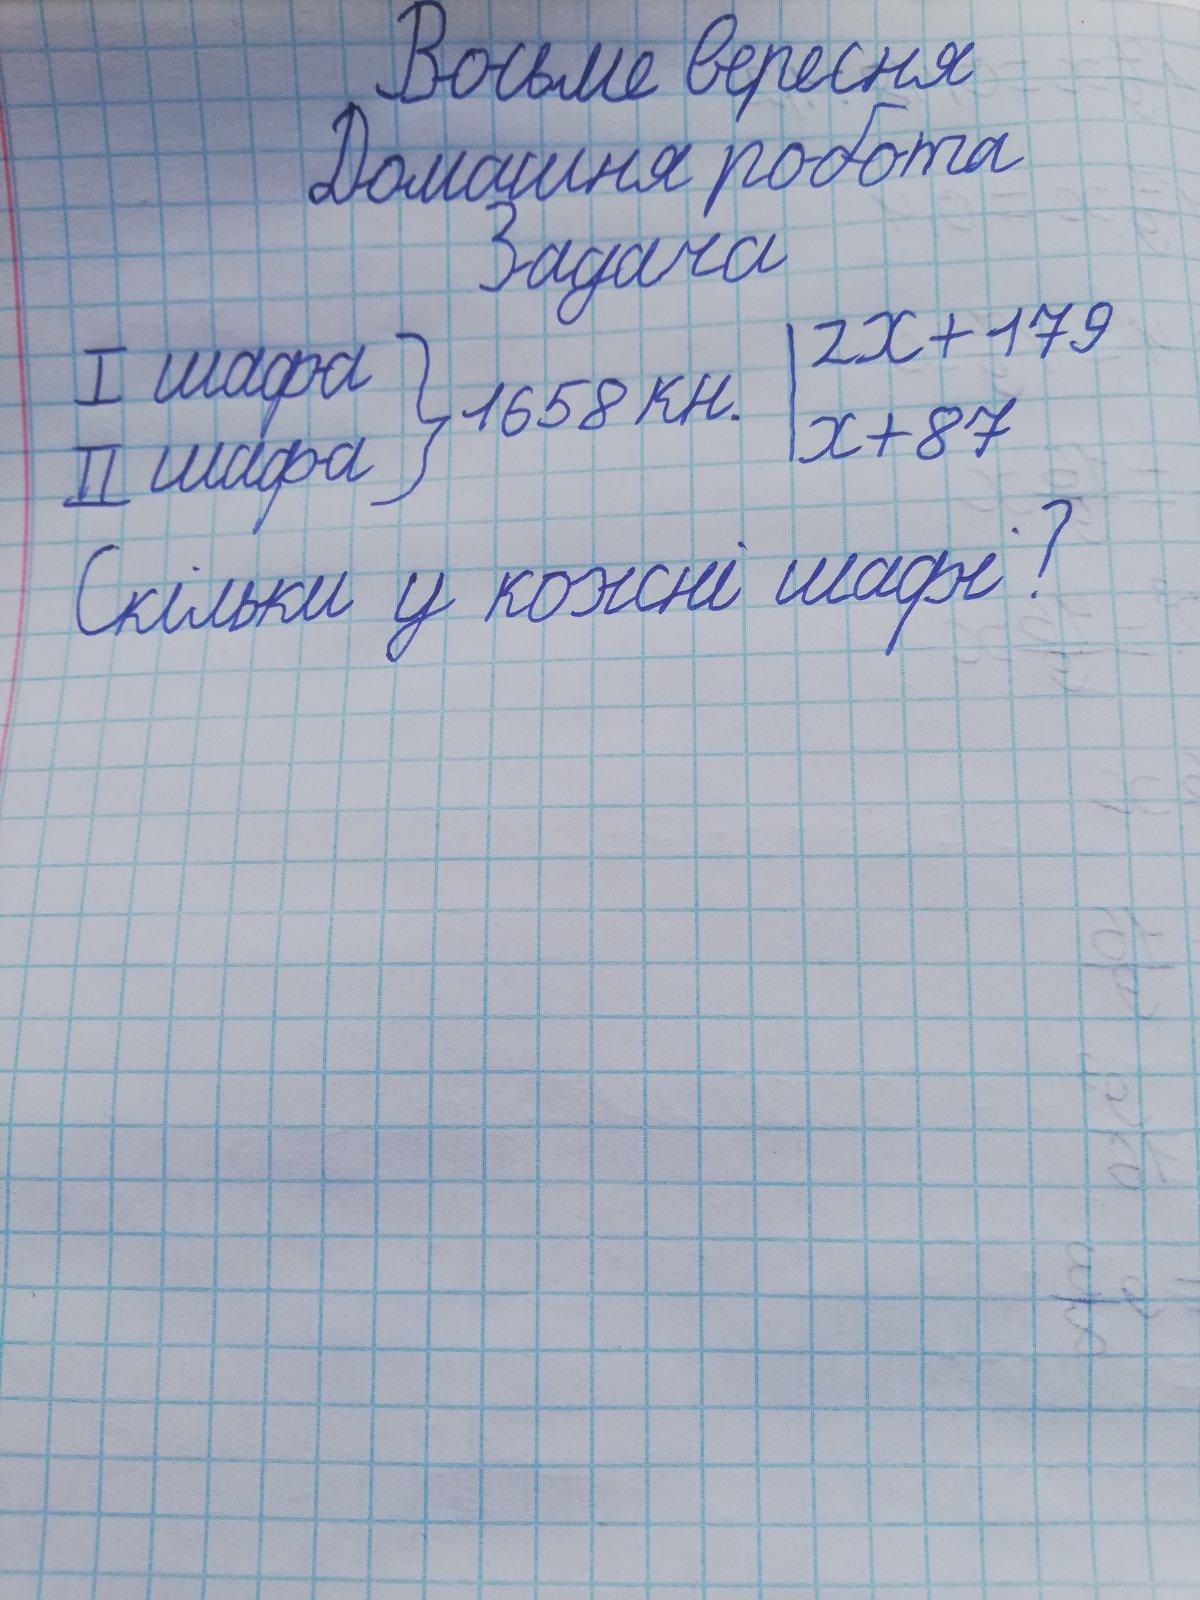 Восьме вересня
Домашня робота
Задача
I шафа } 1658 кн. | 2x+179
II шафа | x+87
Скільки у кожні шафі?